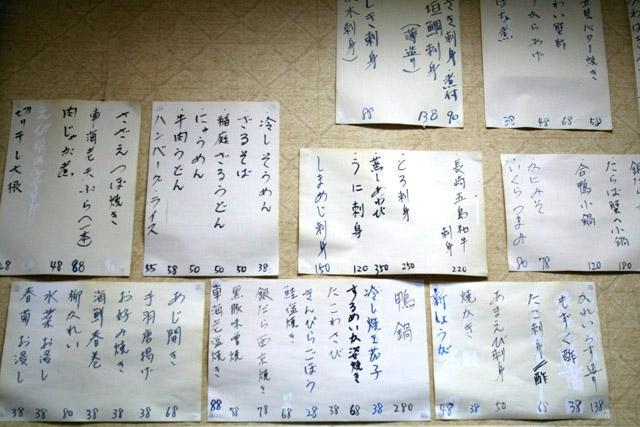 貝バター焼き
わい蟹酢 68
からあげ 48
38
さき刺身・煮付 90
垣鯛刺身 (薄造り) 138
しき刺身 88
木刺身
たらば蟹小鍋 180
合鴨小鍋 120
かにみそ 78
いくらつまみ 80
長崎五島和牛刺身 220
とろ刺身 250
蒸しあわび 350
うに刺身 120
しまあじ刺身 150
冷しそうめん 38
ざるそば 50
稲庭ざるうどん 50
にゅうめん 50
牛肉うどん 58
ハンバーグ・ライス 55
さざえつぼ焼き
車海老天ぷら(一本) 88
肉じゃが煮 48
切り干し大根 28
かれいうす造り 138
もずく酢 38
たこ刺身・酢 68
あまえび刺身 50
焼かき 38
新しょうが 48
鴨鍋 280
冷し焼き茄子 38
するめいか姿焼き 68
たこわさび 38
きんぴらごぼう 28
鮭塩焼き 68
銀だら西京焼き 78
黒豚味噌焼 78
車海老塩焼き 88
あじ開き 68
手羽唐揚げ 38
お好み焼き 38
海鮮春巻 38
柳かれい 80
水菜お浸し 38
春菊お浸し 38